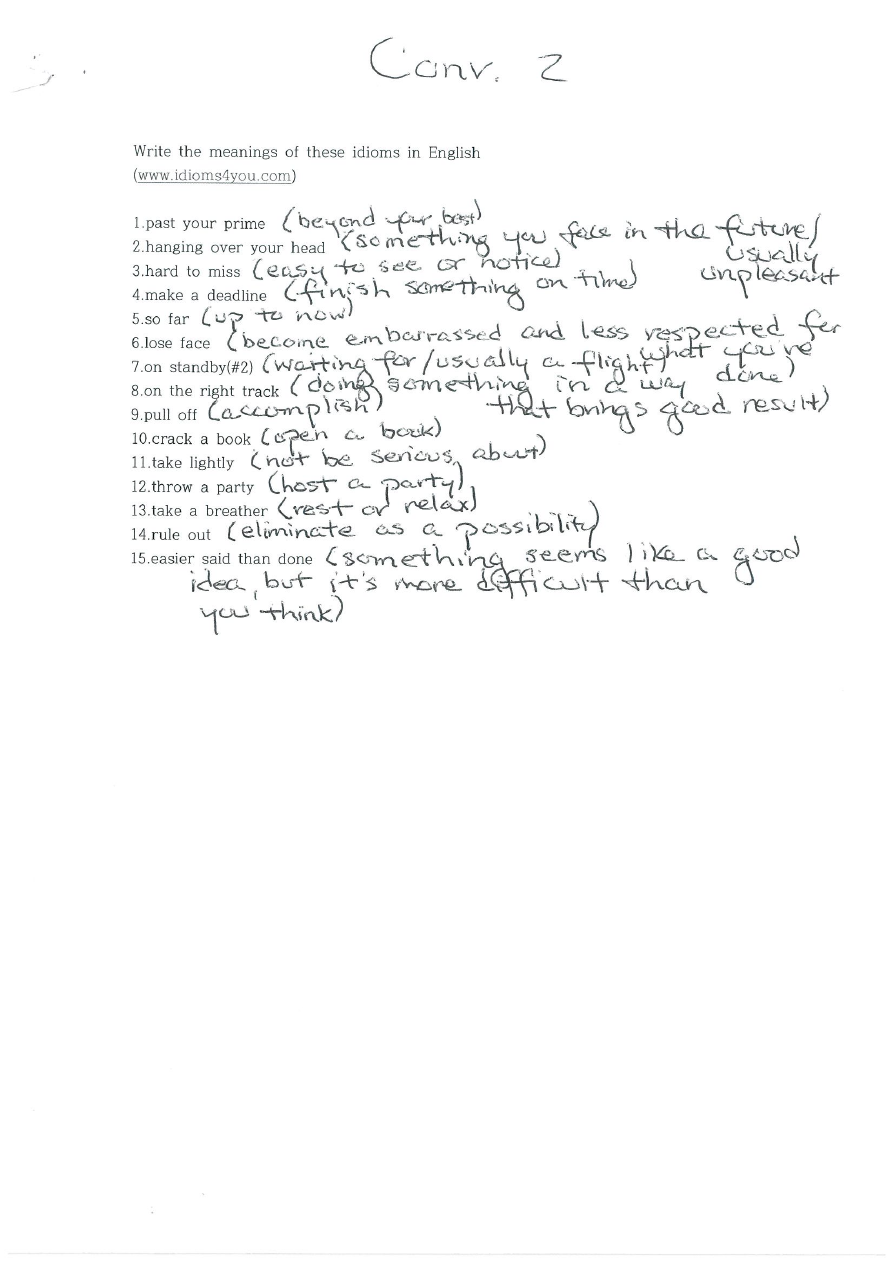 Conv. 2
Write the meanings of these idioms in English
(www.idioms4you.com)
1.past your prime (beyond your best)
2.hanging over your head (something you face in the future/
usually
unpleasant
3.hard to miss (easy to see or notice)
4.make a deadline (finish something on time)
5.so far (up to now)
6.lose face (become embarrassed and less respected for
what you've
done)
7.on standby(#2) (waiting for/usually a flight)
8.on the right track (doing something in a way
that brings good result)
9.pull off (accomplish)
10.crack a book (open a book)
11.take lightly (not be serious about)
12.throw a party (host a party)
13.take a breather (rest or relax)
14.rule out (eliminate as a possibility)
15.easier said than done (something seems like a good
idea, but it's more difficult than
you think)